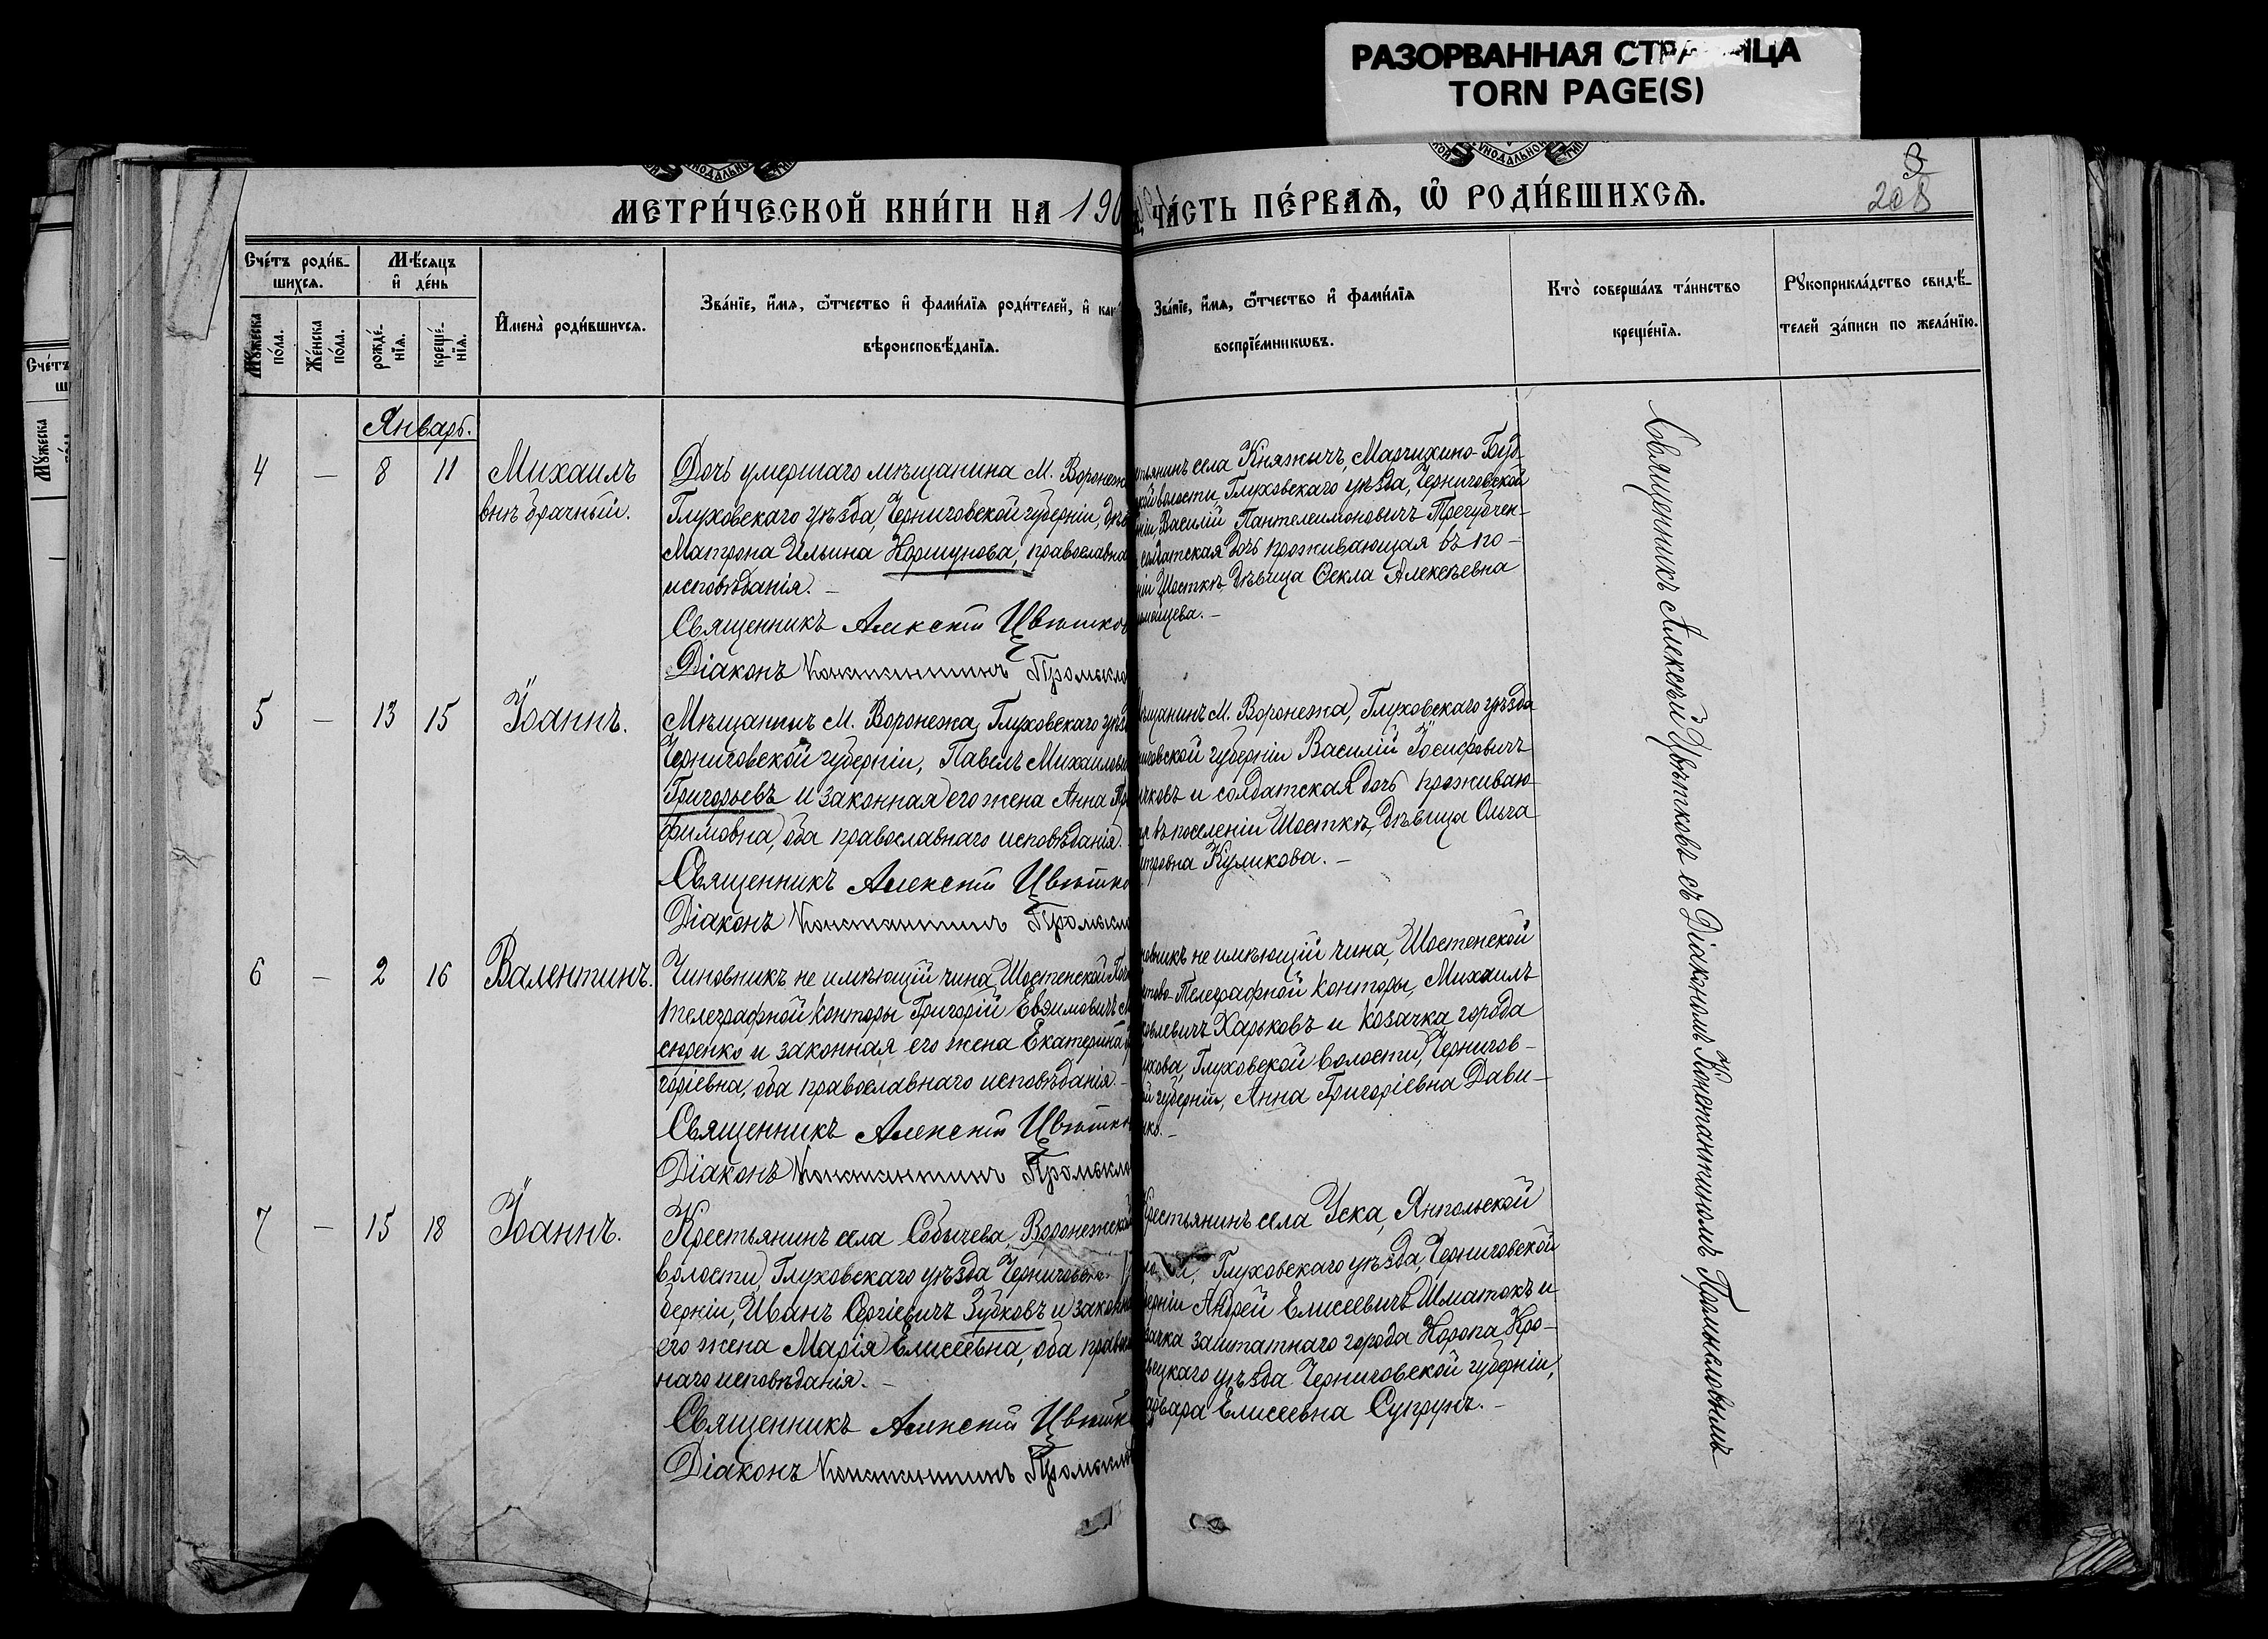 РАЗОРВАННАЯ СТРАНИЦА
TORN PAGE(S)
3
208
МЕТРИ́ЧЕСКОЙ КНИ́ГИ НА 190
ЧА́СТЬ ПЕ́РВАѦ, Ѡ҆ РОДИ́ВШИХСѦ.
Сче́тъ роди́в-
шихсѧ.
Мѣ́сѧцъ
и҆ де́нь
Мꙋ́жеска
по́ла.
Же́нска
по́ла.
рожде́-
нїѧ.
креще́-
нїѧ.
И҆мена̀ роди́вшихсѧ.
Зва́нїе, и҆́мѧ, ѻ҆́тчество и҆ фами́лїѧ роди́телей, и҆ как
вѣроисповѣ́данїѧ.
Зва́нїе, и҆́мѧ, ѻ҆́тчество и҆ фами́лїѧ
воспрїе́мникѡвъ.
Кто̀ соверша́лъ та́инство
креще́нїѧ.
Рꙋкоприкла́дство свидѣ́-
телей за́писи по жела́нїю.
Январь.
4 — 8 11 Михаилъ
внѣ брачный.
Дочь умершаго мѣщанина М. Воронеж
Глуховскаго уѣзда, Черниговской губерніи, дѣв
Матрона Ильина Коршунова, православна
исповѣданія. —
Священникъ Алексѣй Цвѣтков
Діаконъ Константинъ Промысло
стьянинъ села Княжичъ, Марчихино-Буд-
кой волости, Глуховскаго уѣзда, Черниговской
ніи, Василій Пантелеимоновичъ Трегубчен-
солдатская дочь проживающая въ по-
ніи Шосткѣ, дѣвица Ѳекла Алексѣевна
5 — 13 15 Іоаннъ.
Мѣщанинъ М. Воронежа, Глуховскаго уѣз
Черниговской губерніи, Павелъ Михаилови
Григорьевъ и законная его жена Анна Тр
фимовна, оба православнаго исповѣданія.
Священникъ Алексѣй Цвѣтко
Діаконъ Константинъ Промысло
ѣщанинъ М. Воронежа, Глуховскаго уѣзда
иговской губерніи Василій Іосифовичъ
чковъ и солдатская дочь проживаю-
я въ поселеніи Шосткѣ, дѣвица Ольга
етровна Куликова. —
6 — 2 16 Валентинъ.
Чиновникъ не имѣющій чина, Шостенской Поч
телеграфной конторы Григорій Евѳимовичъ М
сюренко и законная его жена Екатерина
горіевна, оба православнаго исповѣданія. —
Священникъ Алексѣй Цвѣтко
Діаконъ Константинъ Промысло
овникъ не имѣющій чина, Шостенской
тово-Телеграфной конторы, Михаилъ
ковлевичъ Харьковъ и козачка города
ухова, Глуховской волости, Чернигов-
ой губерніи, Анна Григоріевна Дави-
нко. —
7 — 15 18 Іоаннъ.
Крестьянинъ села Собычева, Воронежской
волости, Глуховскаго уѣзда Черниговской
берніи, Иванъ Сергіевичъ Зубковъ и законн
его жена Марія Елисеевна, оба правос
наго исповѣданія. —
Священникъ Алексѣй Цвѣтк
Діаконъ Константинъ Промыслов
Крестьянинъ села Уска, Янпольской
Глуховскаго уѣзда, Черниговской
берніи Андрей Елисеевичъ Шматокъ и
зачка заштатнаго города Коропа, Кро-
вецкаго уѣзда Черниговской губерніи,
арвара Елисеевна Супрунъ. —
Священникъ Алексѣй Цвѣтковъ съ Діакономъ Константиномъ Промысловымъ
Сче́тъ
Мꙋ́жеска